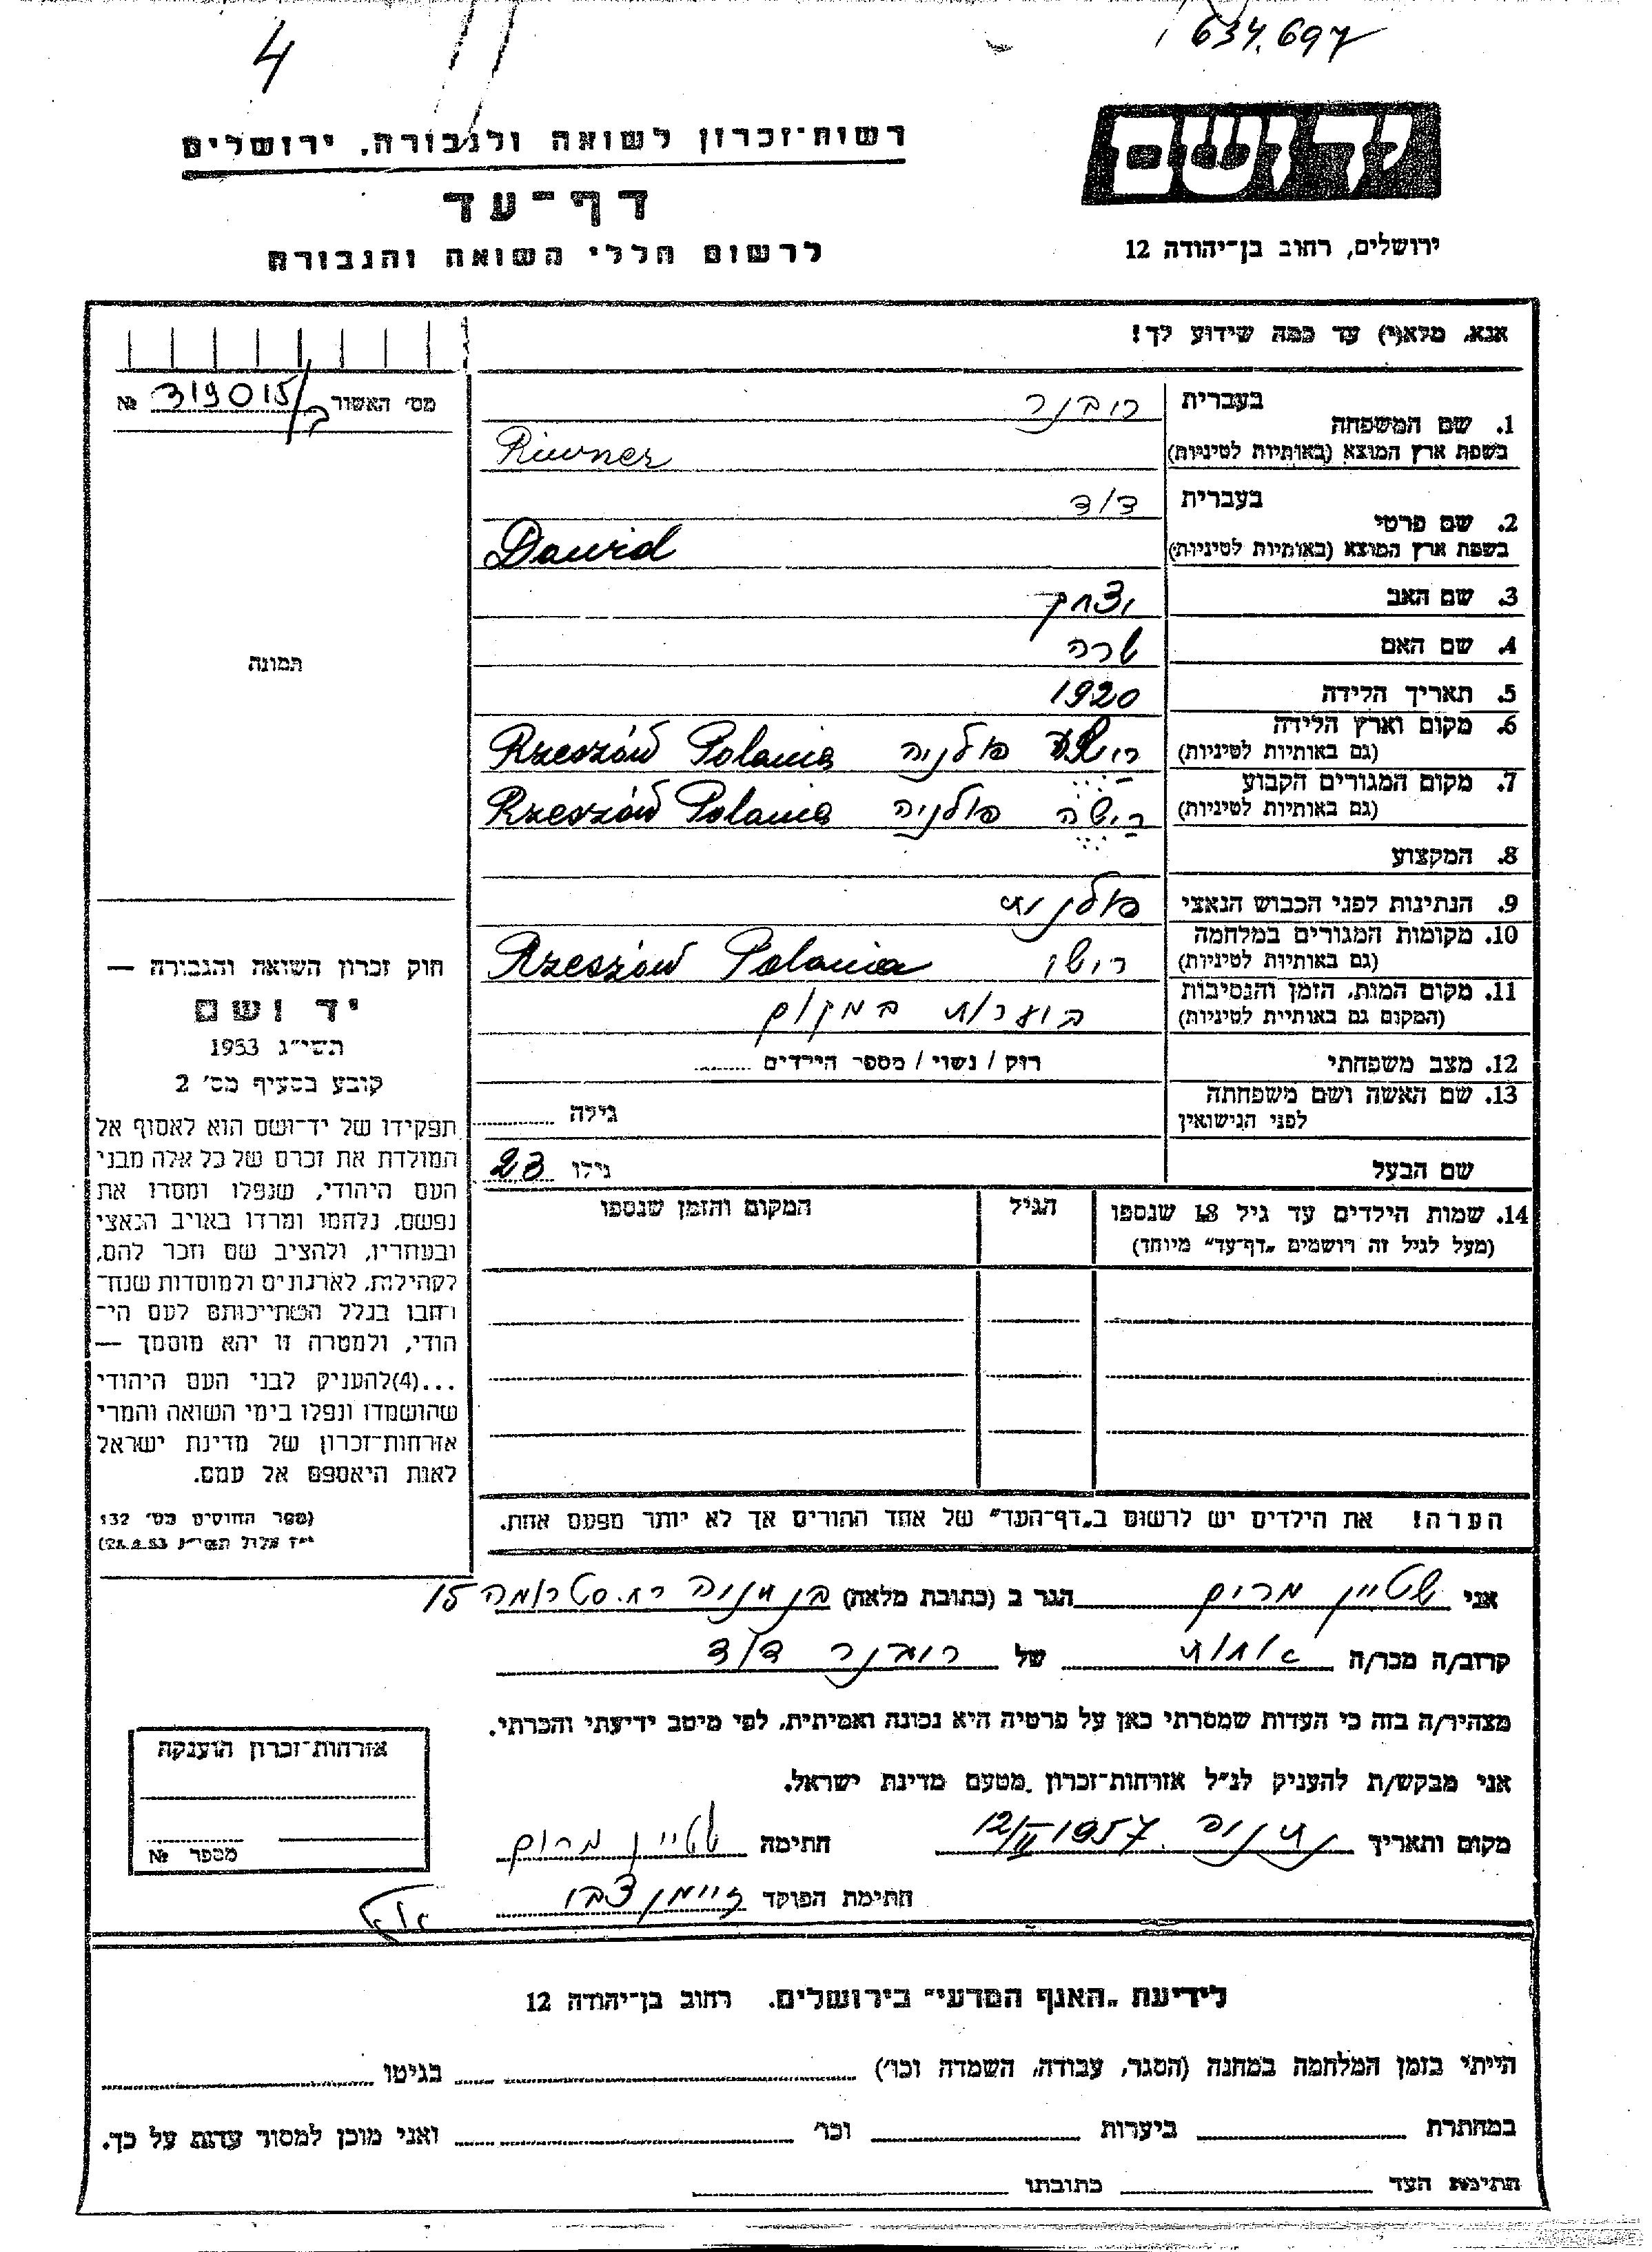 4
634.697
יד ושם
רשות-זכרון לשואה ולגבורה. ירושלים
דף-עד
לרשום חללי השואה והגבורה
ירושלים, רחוב בן-יהודה 12
אנא, מלא(י) עד כמה שידוע לך!
מס' האשור 319015/ב №
1. שם המשפחה
בעברית רובנר
בשפת ארץ המוצא (באותיות לטיניות) Riwner
2. שם פרטי
בעברית דוד
בשפת ארץ המוצא (באותיות לטיניות) Dawid
3. שם האב יצחק
4. שם האם שרה
5. תאריך הלידה 1920
6. מקום וארץ הלידה
(גם באותיות לטיניות) פולניה Rzeszów Polania
7. מקום המגורים הקבוע
(גם באותיות לטיניות) רישה פולניה Rzeszów Polania
8. המקצוע
9. הנתינות לפני הכבוש הנאצי פולנית
10. מקומות המגורים במלחמה
(גם באותיות לטיניות) Rzeszów Polania
11. מקום המות, הזמן והנסיבות
(המקום גם באותיות לטיניות) במקום
12. מצב משפחתי רוק / נשוי / מספר הילדים ........
13. שם האשה ושם משפחתה
לפני הנישואין גילה ........
שם הבעל גילו 23
14. שמות הילדים עד גיל 18 שנספו
(מעל לגיל זה רושמים „דף-עד" מיוחד)
הגיל
המקום והזמן שנספו
הערה! את הילדים יש לרשום ב„דף-העד" של אחד ההורים אך לא יותר מפעם אחת.
תמונה
חוק זכרון השואה והגבורה —
יד ושם
תשי״ג 1953
קובע בסעיף מס' 2
תפקידו של יד-ושם הוא לאסוף אל
המולדת את זכרם של כל אלה מבני
העם היהודי, שנפלו ומסרו את
נפשם, נלחמו ומרדו באויב הנאצי
ובעוזריו, ולהציב שם וזכר להם,
לקהילות, לארגונים ולמוסדות שנח-
רבו בגלל השתייכותם לעם הי-
הודי, ולמטרה זו יהא מוסמך —
...(4)להעניק לבני העם היהודי
שהושמדו ונפלו בימי השואה והמרי
אזרחות-זכרון של מדינת ישראל
לאות היאספם אל עמם.
(ספר החוקים מס' 132
י״ז אלול תשי״ג 28.8.53)
אני שטיין מרים הגר ב (כתובת מלאה) בן נתניה רח. סטרומה 15
קרוב/ה מכר/ה אחות של רובנר דוד
מצהיר/ה בזה כי העדות שמסרתי כאן על פרטיה היא נכונה ואמיתית, לפי מיטב ידיעתי והכרתי.
אני מבקש/ת להעניק לנ״ל אזרחות-זכרון מטעם מדינת ישראל.
מקום ותאריך נתניה 12/II 1957 חתימה שטיין מרים
חתימת הפוקד זיימן צבי
אזרחות-זכרון הוענקה
מספר №
לידיעת „האגף המדעי" בירושלים. רחוב בן-יהודה 12
הייתי בזמן המלחמה במחנה (הסגר, עבודה, השמדה וכו') בגיטו
במחתרת ביערות וכו' ואני מוכן למסור עדות על כך.
חתימת העד כתובתו